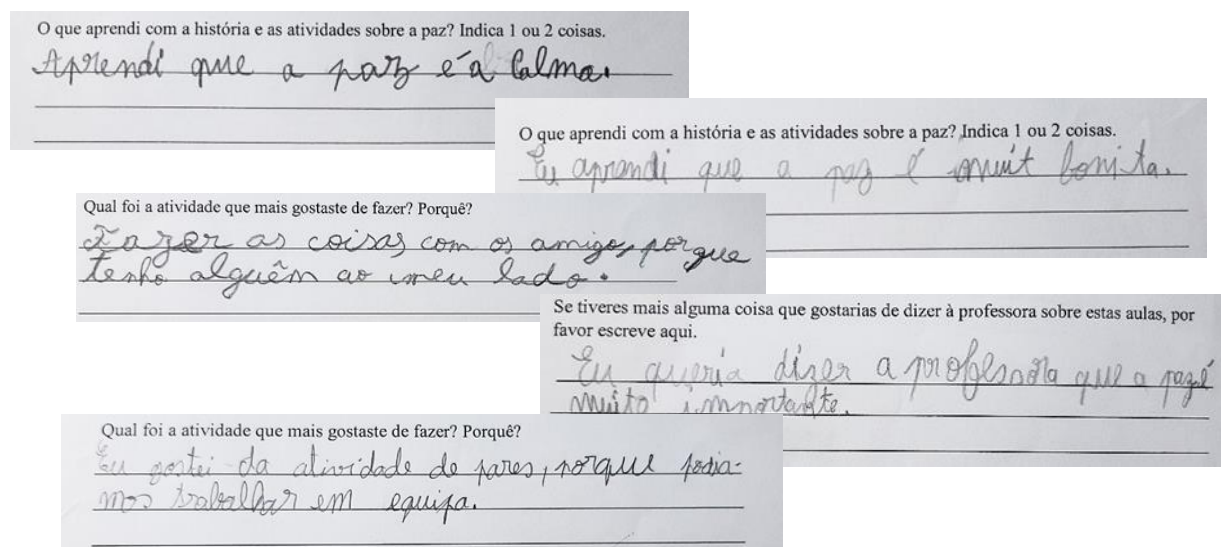 O que aprendi com a história e as atividades sobre a paz? Indica 1 ou 2 coisas.
Aprendi que a paz é a calma.
O que aprendi com a história e as atividades sobre a paz? Indica 1 ou 2 coisas.
Eu aprandi que a paz é muit bonita.
Qual foi a atividade que mais gostaste de fazer? Porquê?
Fazer as coisas com os amigos, porque
tenho alguêm ao meu lado.
Se tiveres mais alguma coisa que gostarias de dizer à professora sobre estas aulas, por
favor escreve aqui.
Eu queria dizer a professora que a paz é
muito importante.
Qual foi a atividade que mais gostaste de fazer? Porquê?
Eu gostei da atividade de pares, porque podia-
mos trabalhar em equipa.